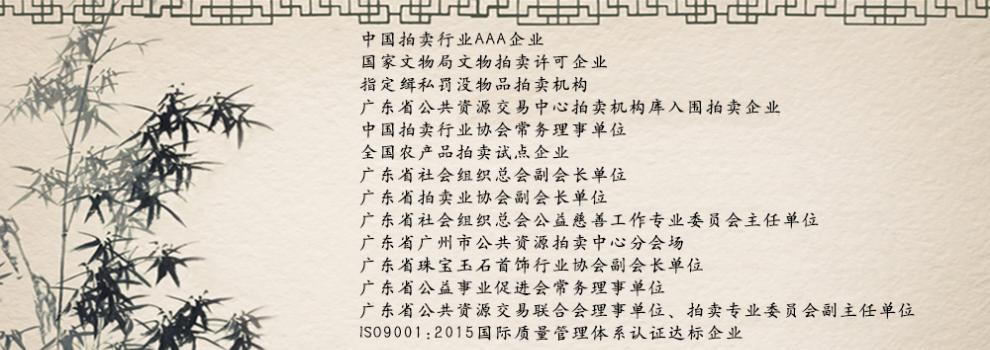 中国拍卖行业AAA企业
国家文物局文物拍卖许可企业
指定缉私罚没物品拍卖机构
广东省公共资源交易中心拍卖机构库入围拍卖企业
中国拍卖行业协会常务理事单位
全国农产品拍卖试点企业
广东省社会组织总会副会长单位
广东省拍卖业协会副会长单位
广东省社会组织总会公益慈善工作专业委员会主任单位
广东省广州市公共资源拍卖中心分会场
广东省珠宝玉石首饰行业协会副会长单位
广东省公益事业促进会常务理事单位
广东省公共资源交易联合会理事单位、拍卖专业委员会副主任单位
ISO9001:2015国际质量管理体系认证达标企业